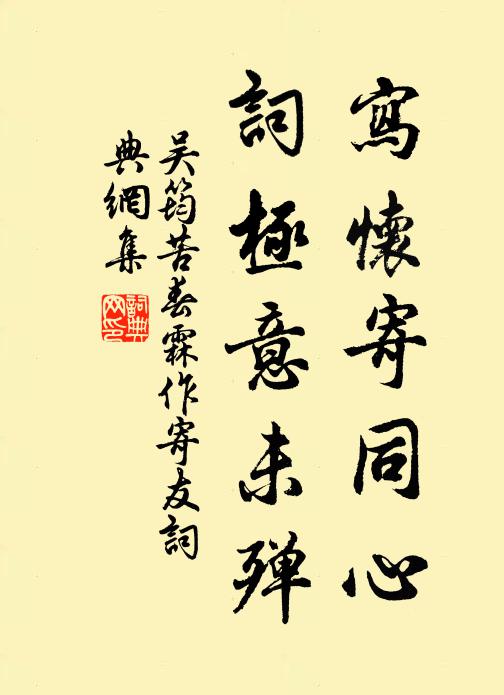 寫懷寄同心
詞極意未殫
吴筠苦春霖作寄友詞
典網集
詞典網印